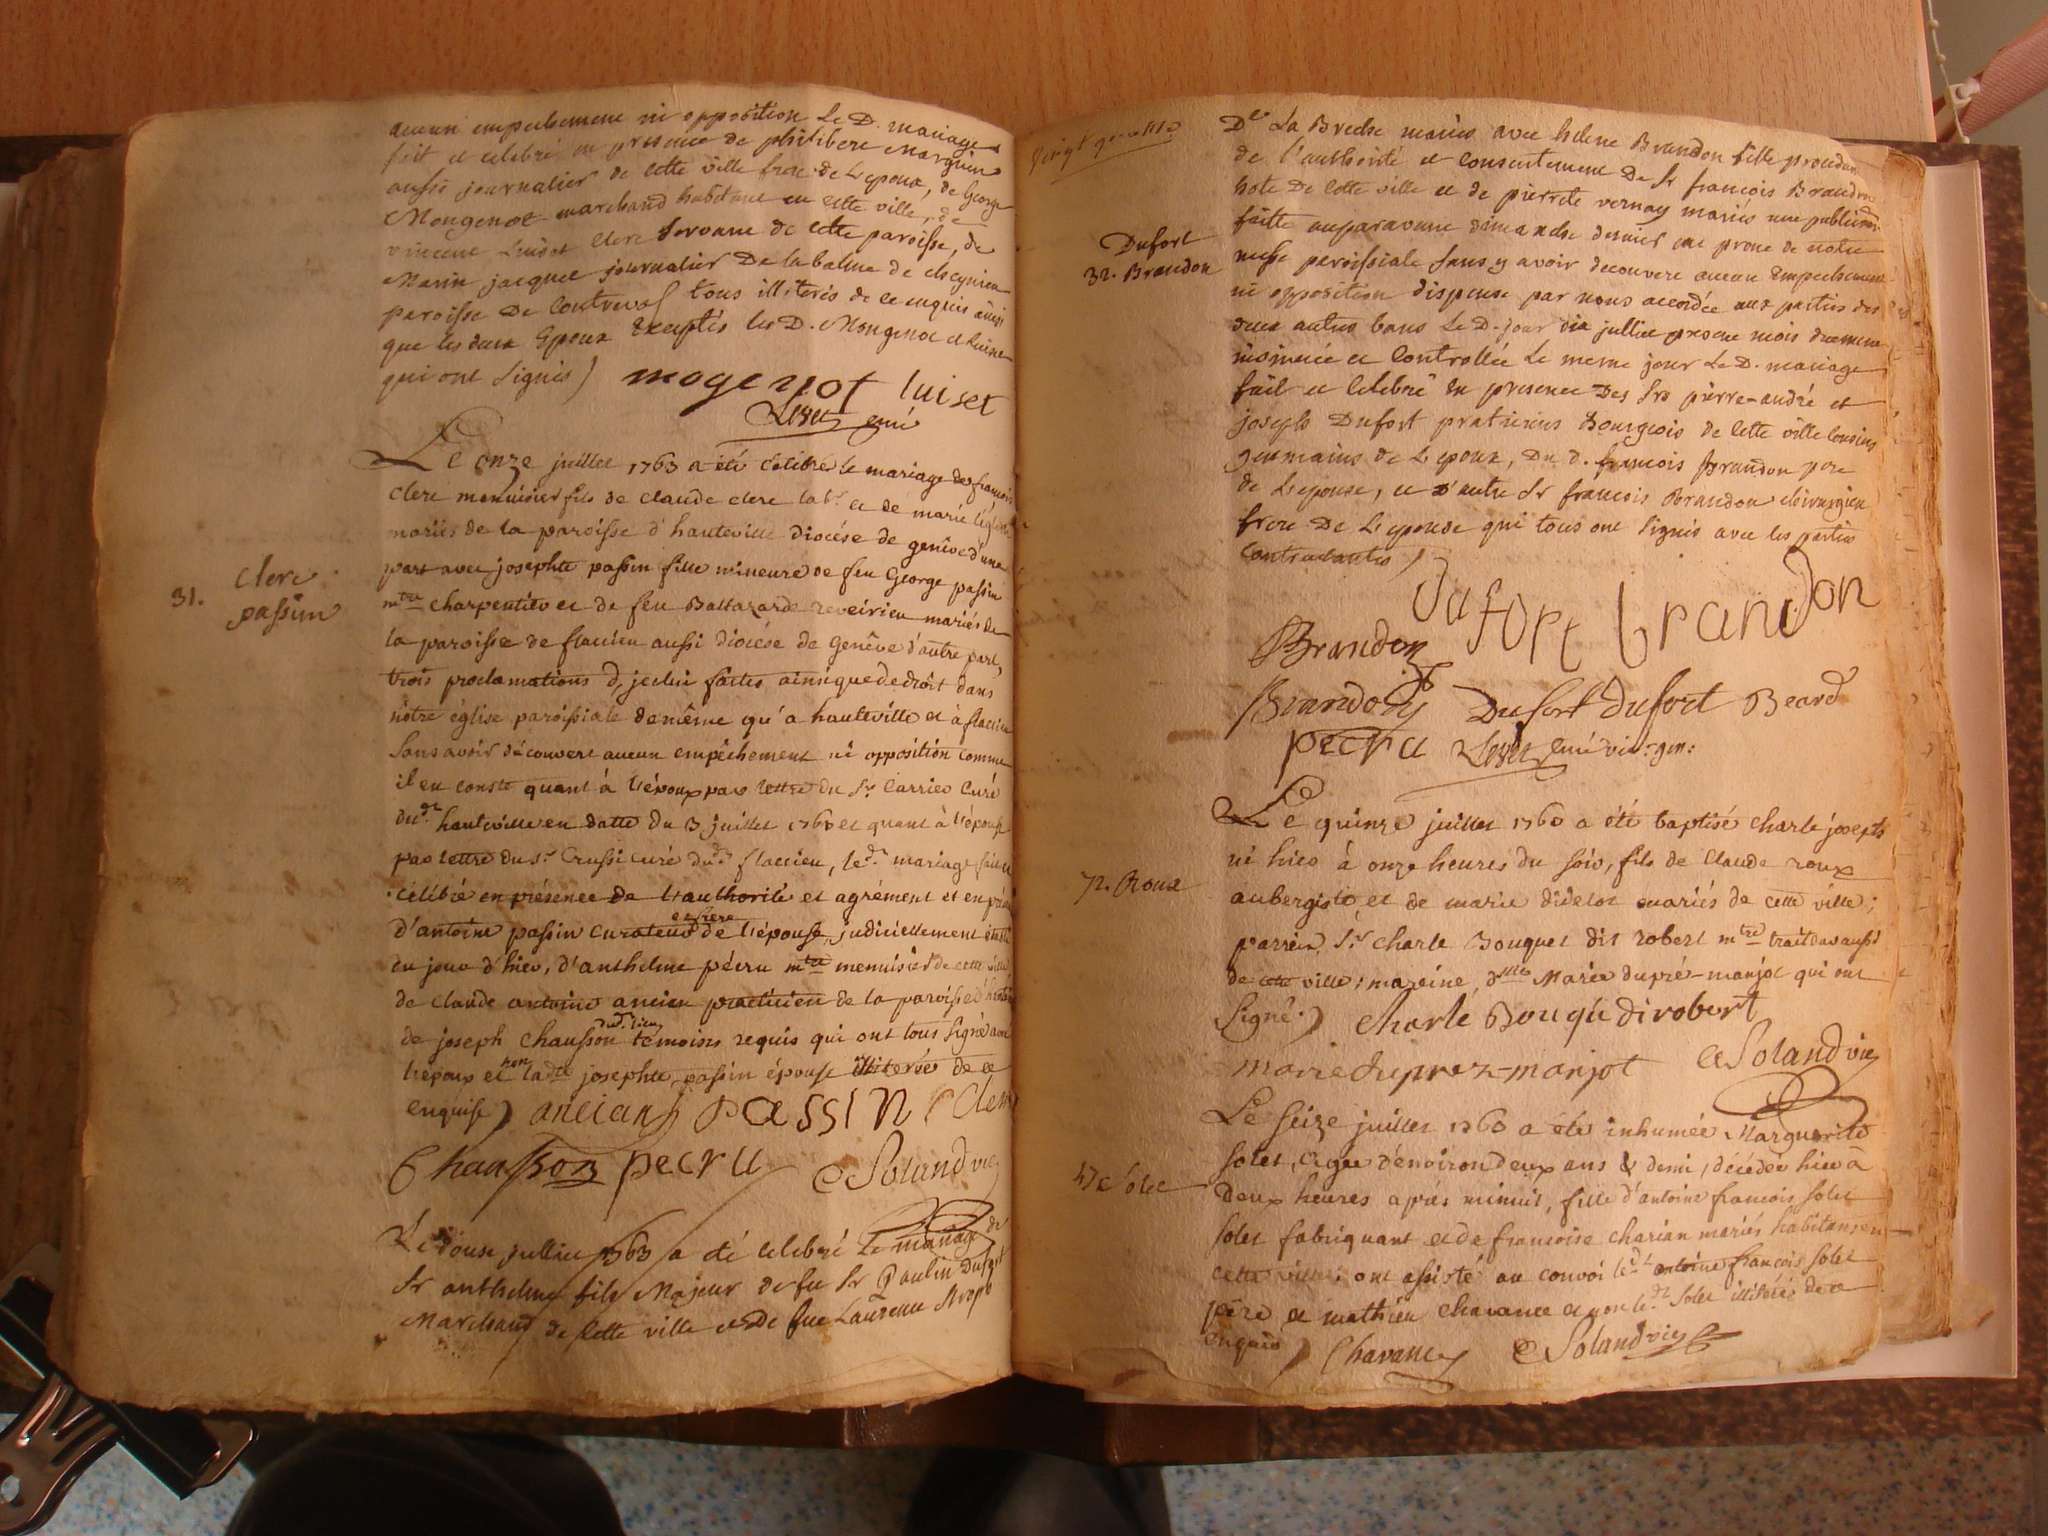 aucun empechement ni opposition Le D. mariage
fait et celebré en presence de philibert Marguin
aussi journalier de cette ville frere de L'epoux, de George
Mongenot marchand habitant en cette ville, de
vincent Luiset clerc servant de cette paroisse, de
Marin jacquet journalier De la balme de
paroisse De Contrevos tous illiterés de ce enquis ainsi
que les deux Epoux Exceptés les D. Mongenot et luiset
qui ont signés) mogenot luiset
curé
Le onze juillet 1763 a été célébré le mariage de françois
clerc menuisier fils de claude clerc lab.r et de marie
mariés de la paroisse d'hauteville diocése de genêve d'une
31. clerc passin
part avec josephte passin fille mineure de feu George passin
m.tre charpentier et de feu Baltazarde reveirieu mariés de
la paroisse de flaccieu aussi diocése de Genêve d'autre part,
trois proclamations d'jcelui faites ainsi que de droit dans
nôtre église paroissiale de même qu'a hauteville et à flaccieu
sans avoir découvert aucun empêchement ni opposition comme
il en conste quant à l'époux par lettre du S.r Carrier Curé
dud.t hauteville en datte du 3 juillet 1763 et quant à l'épouse
par lettre du S.r Crussi curé dud.t flaccieu, led.t mariage fait et
célébré en présence de l'authorité et agrément et en
d'antoine passin curateur et frere de l'épouse, judiciellement
du jour d'hier, d'anthelme pécru m.tre menuisier de cette ville
de claude antoine ancian practicien de la paroisse
de joseph chausson dud. lieu témoins requis qui ont tous signé avec
l'époux et non lad.te josephte passin épouse illiterée de ce
enquise) anciant PassiN Clerc
Chausson pecru Soland vic
Le douse julliet 1763 a été celebré Le mariage de
Sr anthelme fils Majeur de fu Sr Paulin Dufort
Marchand de cette ville et De fue Laurence
vingt quatre
D.lle La Breche mariés avec helene Brandon fille procedant
de l'authorité et consentement De Sr francois Brandon
hote De cette ville et de pierrete vernay mariés une publication
faitte auparavant dimanche dernier au prone de notre
Dufort
32. Brandon
messe paroissiale sans y avoir decouvert aucun Empechement
ni opposition dispense par nous accordée aux parties des
deux autres bans Le D. jour dix julliet present mois duement
insinuée et Controllée Le meme jour Le D. mariage
fait et Celebré En presence Des Srs pierre-andré et
joseph Dufort praticiens Bourgeois de Cette ville Cousins
germains de L'epoux, Du d. francois Brandon pere
de L'epouse, et d'autre Sr francois Brandon chirurgien
frere De L'epouse qui tous ont signés avec les parties
Contractantes)
Dufort brandon
Brandon
Brandon Dufort dufort Beard
pecru curé vic: gen:
Le quinze juillet 1763 a été baptisé charle joseph
né hier à onze heures du soir, fils de claude roux
72. Roux
aubergiste et de marie didelot mariés de cette ville;
parrein S.r charle Bouquet dit robert m.tre traiteur aussi
de cette ville; mareine, d.lle Marie dupré-manjot qui ont
signé.) Charle Bouqué di robert
marie duprez-manjot Soland vic
Le seize juillet 1763 a été inhumée Marguerite
solet, agée d'environ deux ans & demi, décédée hier à
47 Solet
deux heures après minuit, fille d'antoine françois solet
solet fabriquant et de françoise charian mariés habitans en
cette ville; ont assisté au convoi led.t antoine françois solet
père et mathieu chavance et non le d.t solet illiteré de ce
enquis) Chavance Soland vic